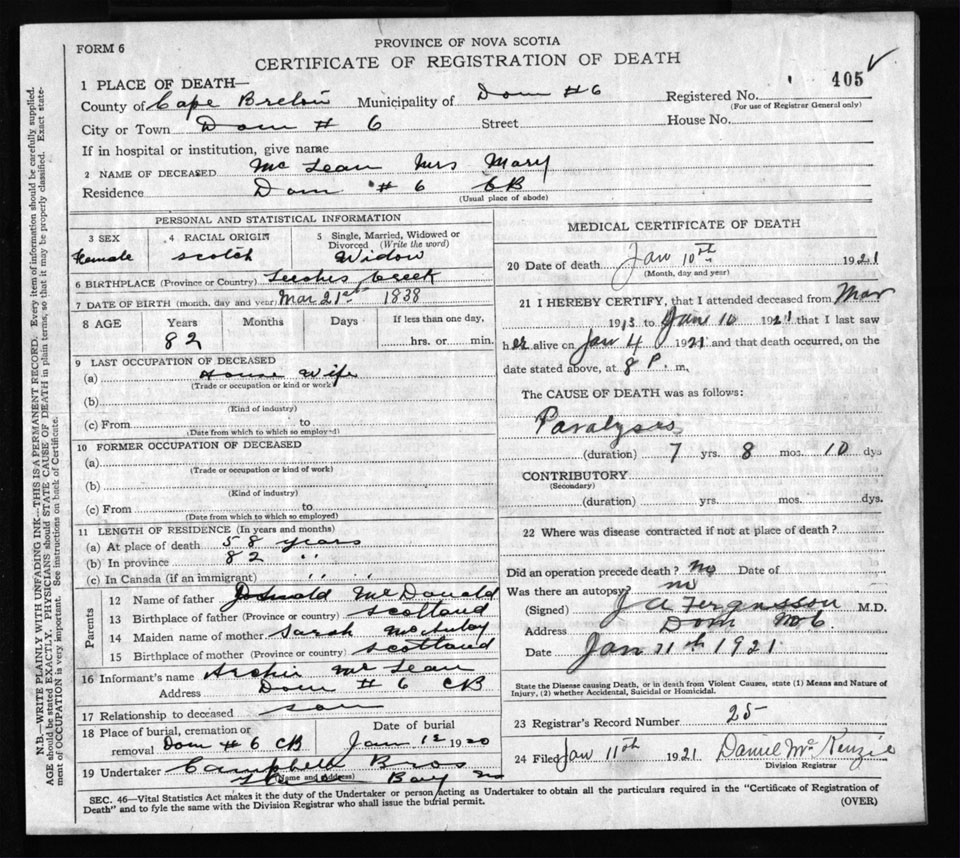 FORM 6
PROVINCE OF NOVA SCOTIA
CERTIFICATE OF REGISTRATION OF DEATH
1 PLACE OF DEATH—
Registered No. 405
(For use of Registrar General only)
County of Cape Breton Municipality of Dom #6
City or Town Dom # 6 Street House No.
If in hospital or institution, give name
2 NAME OF DECEASED McLean Mrs Mary
Residence Dom # 6 CB
(Usual place of abode)
PERSONAL AND STATISTICAL INFORMATION
3 SEX Female
4 RACIAL ORIGIN Scotch
5 Single, Married, Widowed or Divorced (Write the word) Widow
6 BIRTHPLACE (Province or Country) Leeches Creek
7 DATE OF BIRTH (month, day and year) Mar 21st 1838
8 AGE Years Months Days If less than one day,
82 hrs. or min.
9 LAST OCCUPATION OF DECEASED
(a) House Wife
(Trade or occupation or kind or work)
(b)
(Kind of industry)
(c) From to
(Date from which to which so employed)
10 FORMER OCCUPATION OF DECEASED
(a)
(Trade or occupation or kind of work)
(b)
(Kind of industry)
(c) From to
(Date from which to which so employed)
11 LENGTH OF RESIDENCE (In years and months)
(a) At place of death 58 years
(b) In province 82 "
(c) In Canada (if an immigrant) " "
Parents
12 Name of father McDonald
13 Birthplace of father (Province or country) Scotland
14 Maiden name of mother Sarah McAulay
15 Birthplace of mother (Province or country) Scotland
16 Informant's name Archie McLean
Address Dom # 6 CB
17 Relationship to deceased son
18 Place of burial, cremation or removal Dom # 6 CB
Date of burial Jan 12 1920
19 Undertaker Campbell Bros
(Name and Address) Bay
MEDICAL CERTIFICATE OF DEATH
20 Date of death Jan 10th 1921
(Month, day and year)
21 I HEREBY CERTIFY, that I attended deceased from Mar
1913 to June 10 1921 that I last saw
her alive on Jan 4 1921 and that death occurred, on the
date stated above, at 8 P. m.
The CAUSE OF DEATH was as follows:
Paralyses
(duration) 7 yrs. 8 mos. 10 dys
CONTRIBUTORY
(Secondary)
(duration) yrs. mos. dys.
22 Where was disease contracted if not at place of death?
Did an operation precede death? No Date of
Was there an autopsy? no
(Signed) J A Fergusson M.D.
Address Dom No 6.
Date Jan 11th 1921
State the Disease causing Death, or in death from Violent Causes, state (1) Means and Nature of
Injury, (2) whether Accidental, Suicidal or Homicidal.
23 Registrar's Record Number 25
24 Filed Jan 11th 1921 Daniel McKenzie
Division Registrar
SEC. 46—Vital Statistics Act makes it the duty of the Undertaker or person acting as Undertaker to obtain all the particulars required in the "Certificate of Registration of
Death" and to fyle the same with the Division Registrar who shall issue the burial permit. (OVER)
N.B.—WRITE PLAINLY WITH UNFADING INK—THIS IS A PERMANENT RECORD. Every item of information should be carefully supplied.
AGE should be stated EXACTLY. PHYSICIANS should STATE CAUSE OF DEATH in plain terms, so that it may be properly classified. Exact state-
ment of OCCUPATION is very important. See instructions on back of Certificate.